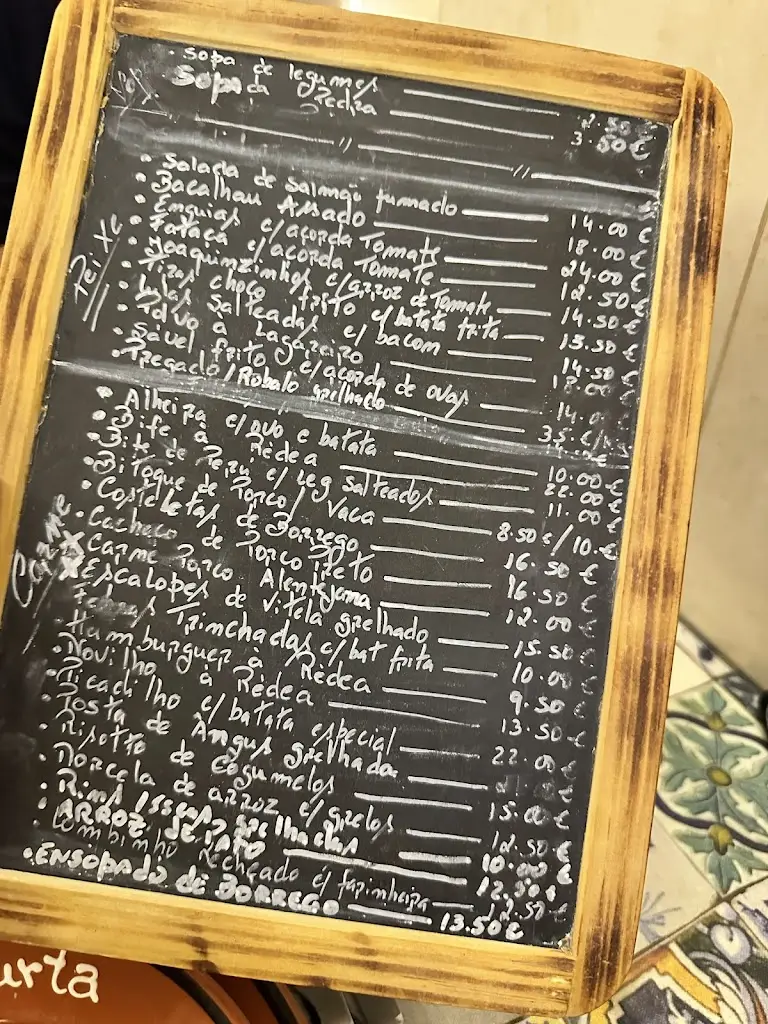 • Sopa de legumes 2.50
Sopa da Redza 3.50€
" "
Peixe
• Salada de Salmão fumado 14.00€
• Bacalhau Assado 18.00€
• Enguias c/açorda Tomate 24.00€
• Fataça c/açorda Tomate 12.50€
• Joaquimzinhos c/arroz de Tomate 14.50€
• Tiras choco frito c/batata frita 15.50€
• Lulas Salteadas c/ bacom 14.50€
• Polvo à Lagareiro 18.00€
• Sável frito c/açorda de ovas 14.0
• Pregado/Robalo grelhado 35.€/
Carne
• Alheira c/ovo e batata 10.00€
• Bife à Rédea 22.00€
• Bife de Peru c/ leg salteados 11.00€
• Bitoque de Porco/Vaca 8.50€/10.€
• Costeletas de Borrego 16.50€
• Cachaço de Porco Preto 16.50€
• Carme Porco Alentejana 12.00€
Escalopes de Vitela grelhado 15.50€
• Febras Trinchadas c/bat frita 10.00€
• Hamburguer à Rédea 9.50€
• Novilho à Rédea 13.50€
• Picadilho c/batata especial 22.00€
• Posta de Angus grelhada
• Risotto de cogumelos 15.00€
• Morcela de arroz c/ grelos 12.50€
• Rins grelhados 10.00€
• ARROZ DE PATO 12.50€
• Lombinho recheado c/ farinheira 12.50€
• ENSOPADO de BORREGO 13.50€
urta